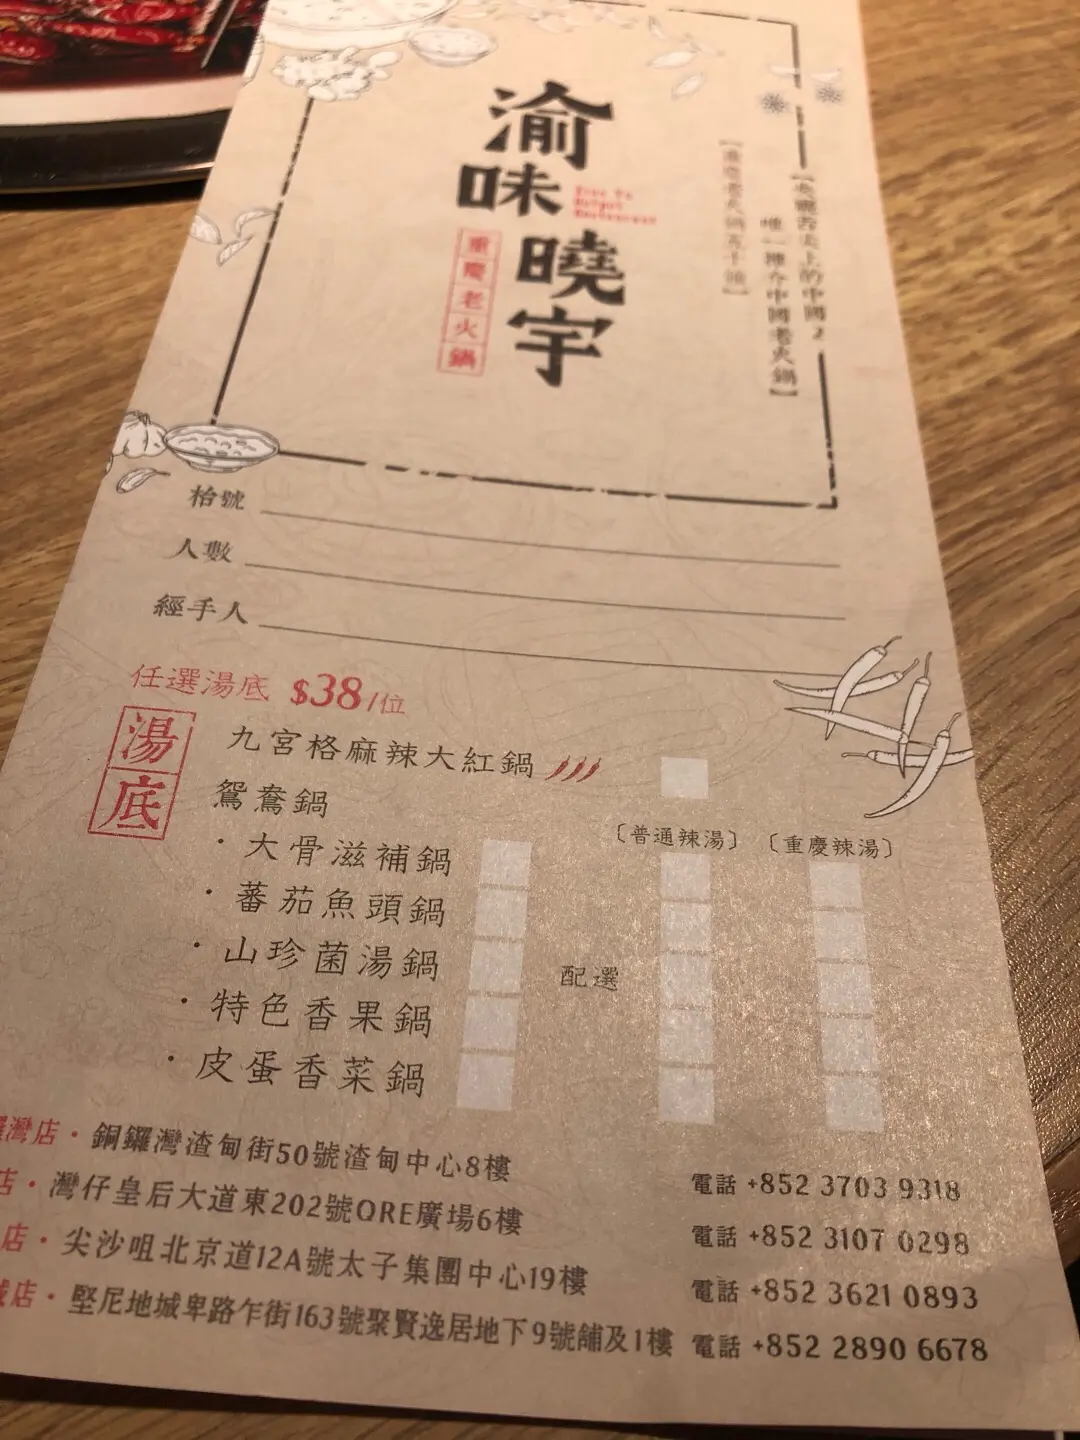 渝味曉宇
重慶老火鍋
【央視舌尖上的中國2
唯一推介中國老火鍋】
【重慶老火鍋五十強】
枱號
人數
經手人
任選湯底 $38/位
湯底
九宮格麻辣大紅鍋
鴛鴦鍋
〔普通辣湯〕 〔重慶辣湯〕
・大骨滋補鍋
・蕃茄魚頭鍋
・山珍菌湯鍋
配選
・特色香果鍋
・皮蛋香菜鍋
灣店・銅鑼灣渣甸街50號渣甸中心8樓 電話 +852 3703 9318
店・灣仔皇后大道東202號QRE廣場6樓 電話 +852 3107 0298
店・尖沙咀北京道12A號太子集團中心19樓 電話 +852 3621 0893
城店・堅尼地城卑路乍街163號聚賢逸居地下9號舖及1樓 電話 +852 2890 6678